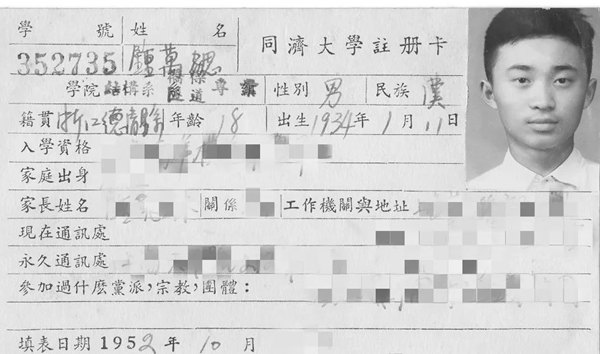 學號 姓名
同濟大學註册卡
352735 鍾萬勰
學院 結構系 橋樑隧道 專業 性別 男 民族 漢
籍貫 浙江德清縣 年齡 18 出生 1934年 1月 11日
入學資格
家庭出身
家長姓名 關係 工作機關與地址
現在通訊處
永久通訊處
參加過什麽黨派,宗教,團體:
填表日期 1952年 10月